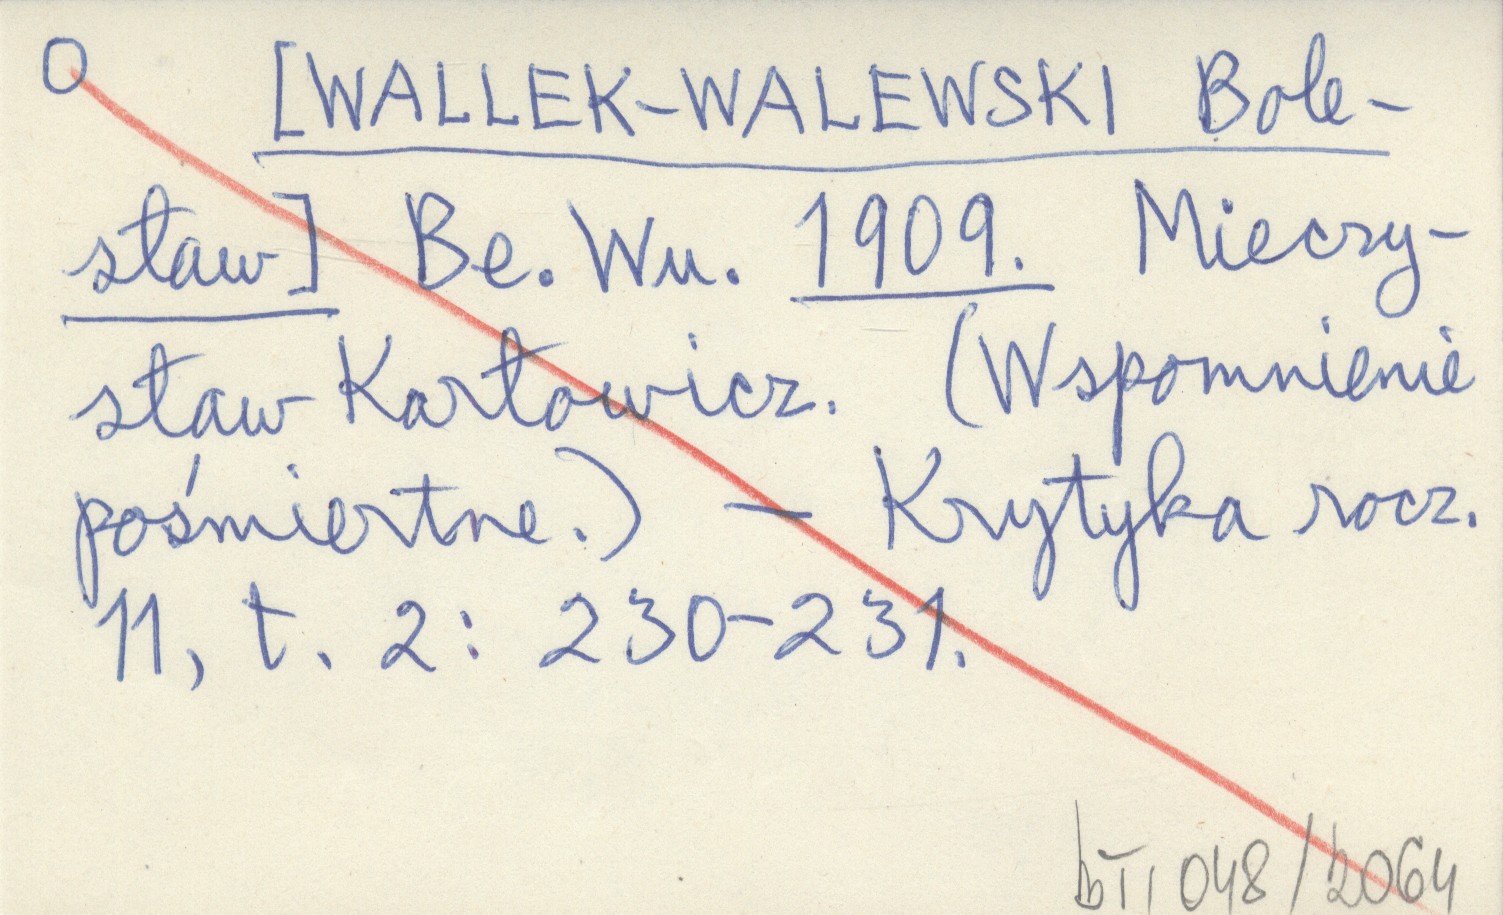 O [WALLEK-WALEWSKI Bole-
sław] Be. Wu. 1909. Mieczy-
sław Karłowicz. (Wspomnienie
pośmiertne.) — Krytyka rocz.
11, t. 2: 230-231.
048/2064